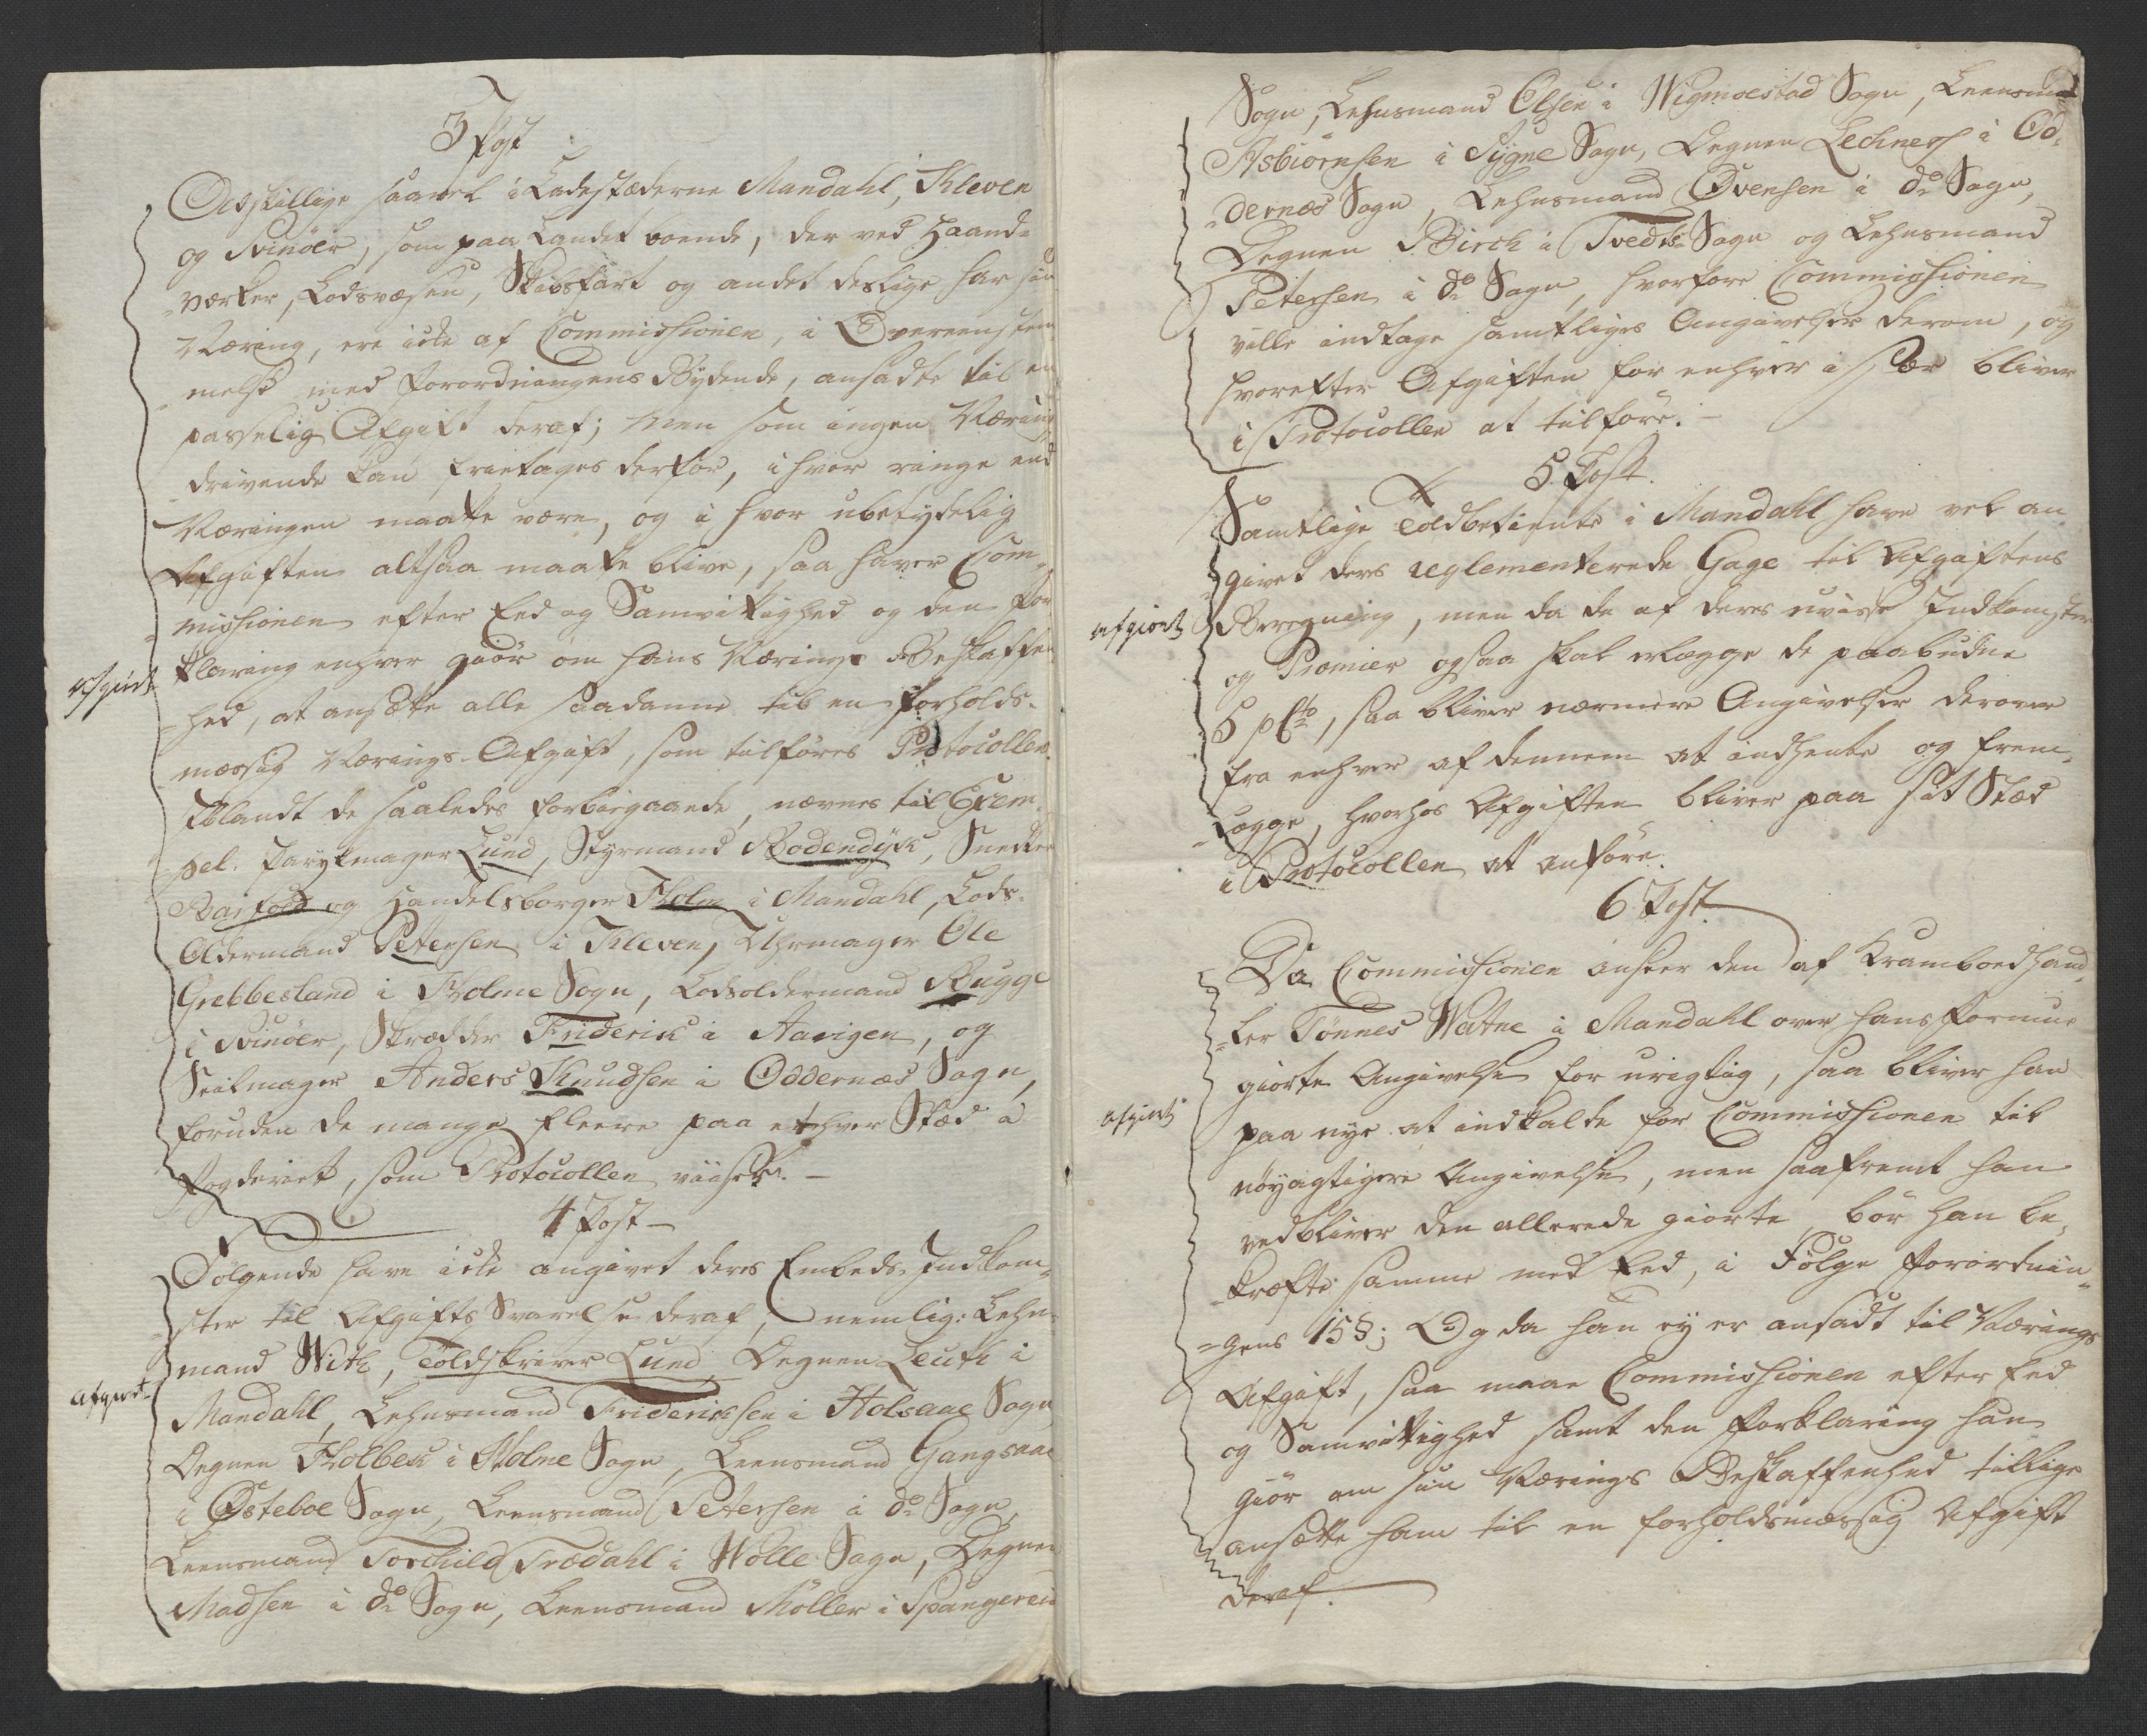 3 Post
Adskillige saavel i Ladestæderne Mandahl, Kleven
og Svinöer, som paa Landet boende, der ved Haand-
værker, Lodsvæsen, Skibsfart og andet deslige har sin
Næring, ere icke af Commissionen, i Overeenstem-
melse med Forordningens Bydende, ansadte til en
passelig Afgift deraf; Men som ingen Næring
drivende kan fritages derfor, i hvor ringe end
Næringen maatte være, og i hvor ubetydelig
Afgiften altsaa maatte blive, saa haver Com-
missionen efter Eed og Samvittighed og den For-
klaring enhver giör om hans Nærings Beskaffen-
hed, at ansætte alle saadanne til en forholds-
mæssig Nærings-Afgift, som tilföres Protocollen.
Iblandt de saaledes forbiegaaende, nævnes til Exem-
pel: Parykmager Lund, Styrmand Bodendyk, Snedker
Barfoed og Handelsborger Holm i Mandahl, Lods-
Oldermand Petersen i Kleven, Uhrmager Ole
Grebbestand i Holme Sogn, Lodsoldermand Bugge
i Svinöer, Skrædder Friderik i Aavigen, og
Seilmager Anders Knudsen i Oddernæs Sogn,
foruden de mange fleere paa ethver Stæd i
Fogderiet, som Protocollen viiser. –
afgiort
4 Post –
Fölgende have icke angivet deres Embeds-Indkom-
ster til Afgifts Svarelse deraf, nemlig: Lehns-
mand With, Toldskriver Lund, Degnen Leuth i
Mandahl, Lehnsmand Friderichsen i Holsaae Sogn
Degnen Holbek i Holme Sogn, Leensmand Gangsaae
i Østeboe Sogn, Leensmand Petersen i do Sogn,
Leensmand Torchild Trædahl i Wolle Sogn, Degnen
Madsen i do Sogn, Leensmand Möller i Spangereid
afgiort
Sogn, Lehnsmand Olsen i Wigmoestad Sogn, Leensmd
Asbiörnsen i Sygne Sogn, Degnen Lechner i Od-
dernæs Sogn, Lehnsmand Ovensen i do Sogn,
Degnen Birch i Tvedts Sogn og Lehnsmand
Petersen i do Sogn, hvorfore Commissionen
ville indtage samtliges Angivelser derom, og
hvorefter Afgiften for enhver i sær bliver
i Protocollen at tilföre. –
5 Post.
Samtlige Toldbetiente i Mandahl have vel an-
givet deres reglementerede Gage til Afgiftens
Beregning, men da de af deres uvisse Indkomster
og Præmier ogsaa skal erlægge de paabudne
5 pCto, saa bliver nærmere Angivelser derover
fra enhver af dennem at indhente og frem-
lægge, hvorhos Afgiften bliver paa sit Stæd
i Protocollen at anföre.
afgiort
6 Post.
Da Commissionen anseer den af Kramboedhand-
ler Tönnes Watne i Mandahl over hans Formue
giorte Angivelse for urigtig, saa bliver han
paa nye at indkalde for Commissionen til
nöyagtigere Angivelse, men saafremt han
vedbliver den allerede giorte, bör han be-
kræfte samme med Eed, i Fölge Forordnin-
gens 15 §; Og da han ey er ansadt til Nærings
Afgift, saa maae Commissionen efter Eed
og Samvittighed samt den Forklaring han
giör om sin Nærings Beskaffenhed tillige
ansætte ham til en forholdsmæssig Afgift
deraf.
afgiort